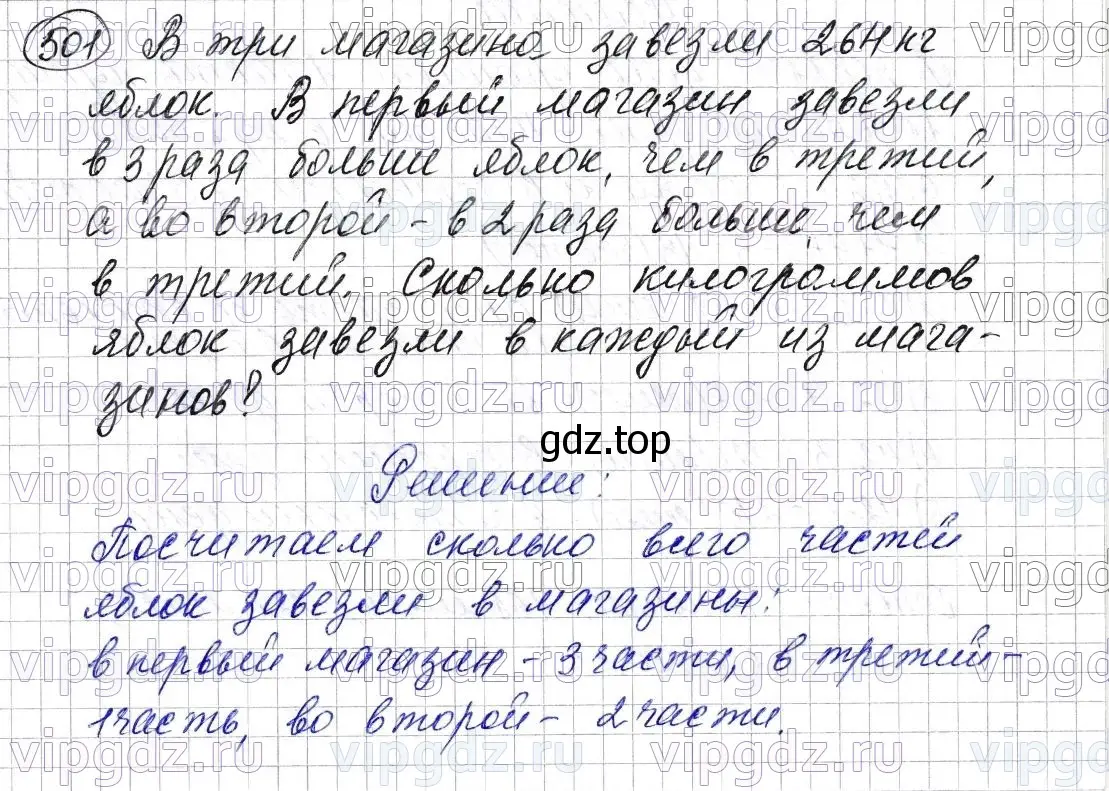 501 В три магазина завезли 264 кг
яблок. В первый магазин завезли
в 3 раза больше яблок, чем в третий,
а во второй - в 2 раза больше, чем
в третий. Сколько килограммов
яблок завезли в каждый из мага-
зинов?
gdz.top
Решение:
Посчитаем сколько всего частей
яблок завезли в магазины:
в первый магазин - 3 части, в третий -
1 часть, во второй - 2 части.
vipgdz.ru